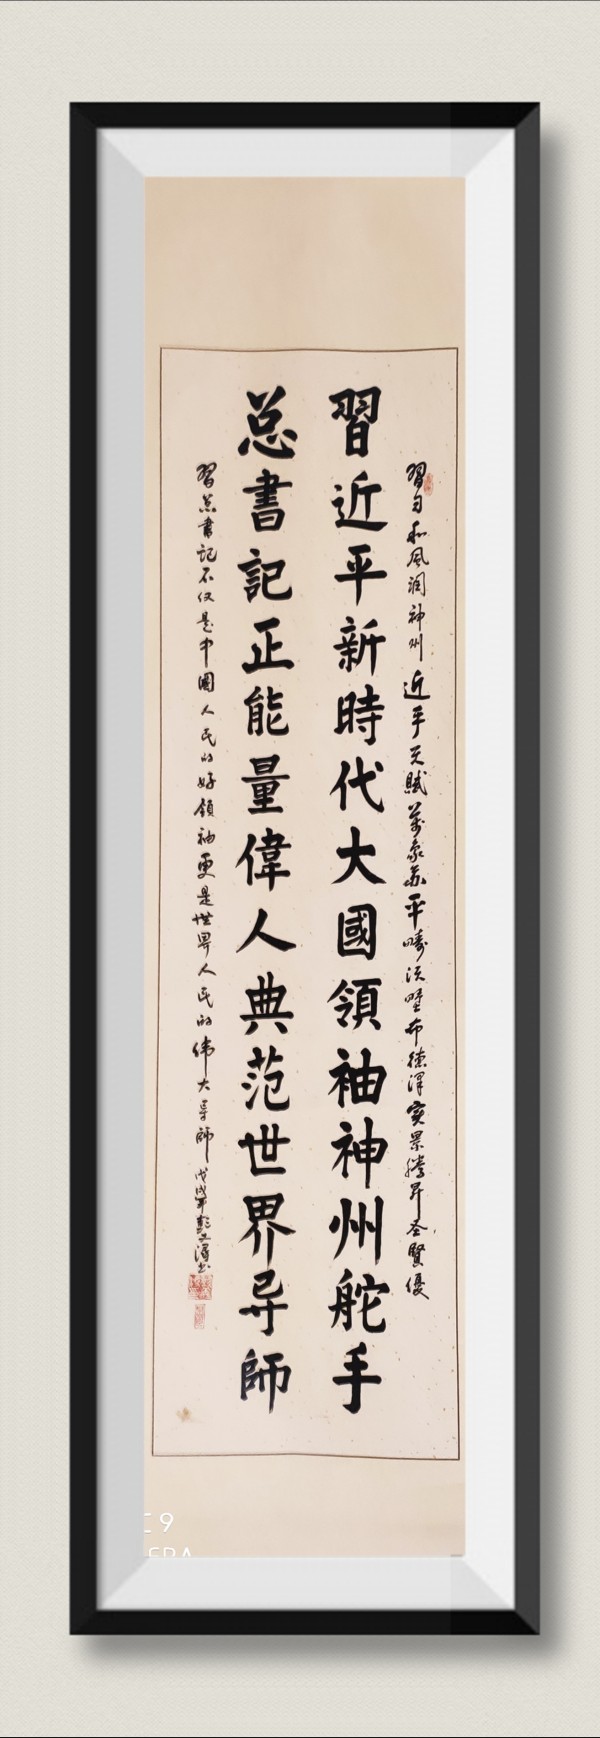 習習和風潤神州近平天賦萬象蘇平疇沃野布德澤實景騰昇圣賢優
習近平新時代大國領袖神州舵手
总書記正能量偉人典范世界导師
習总書記不仅是中國人民的好領袖更是世界人民的偉大导師
戊戌年彭
C 9